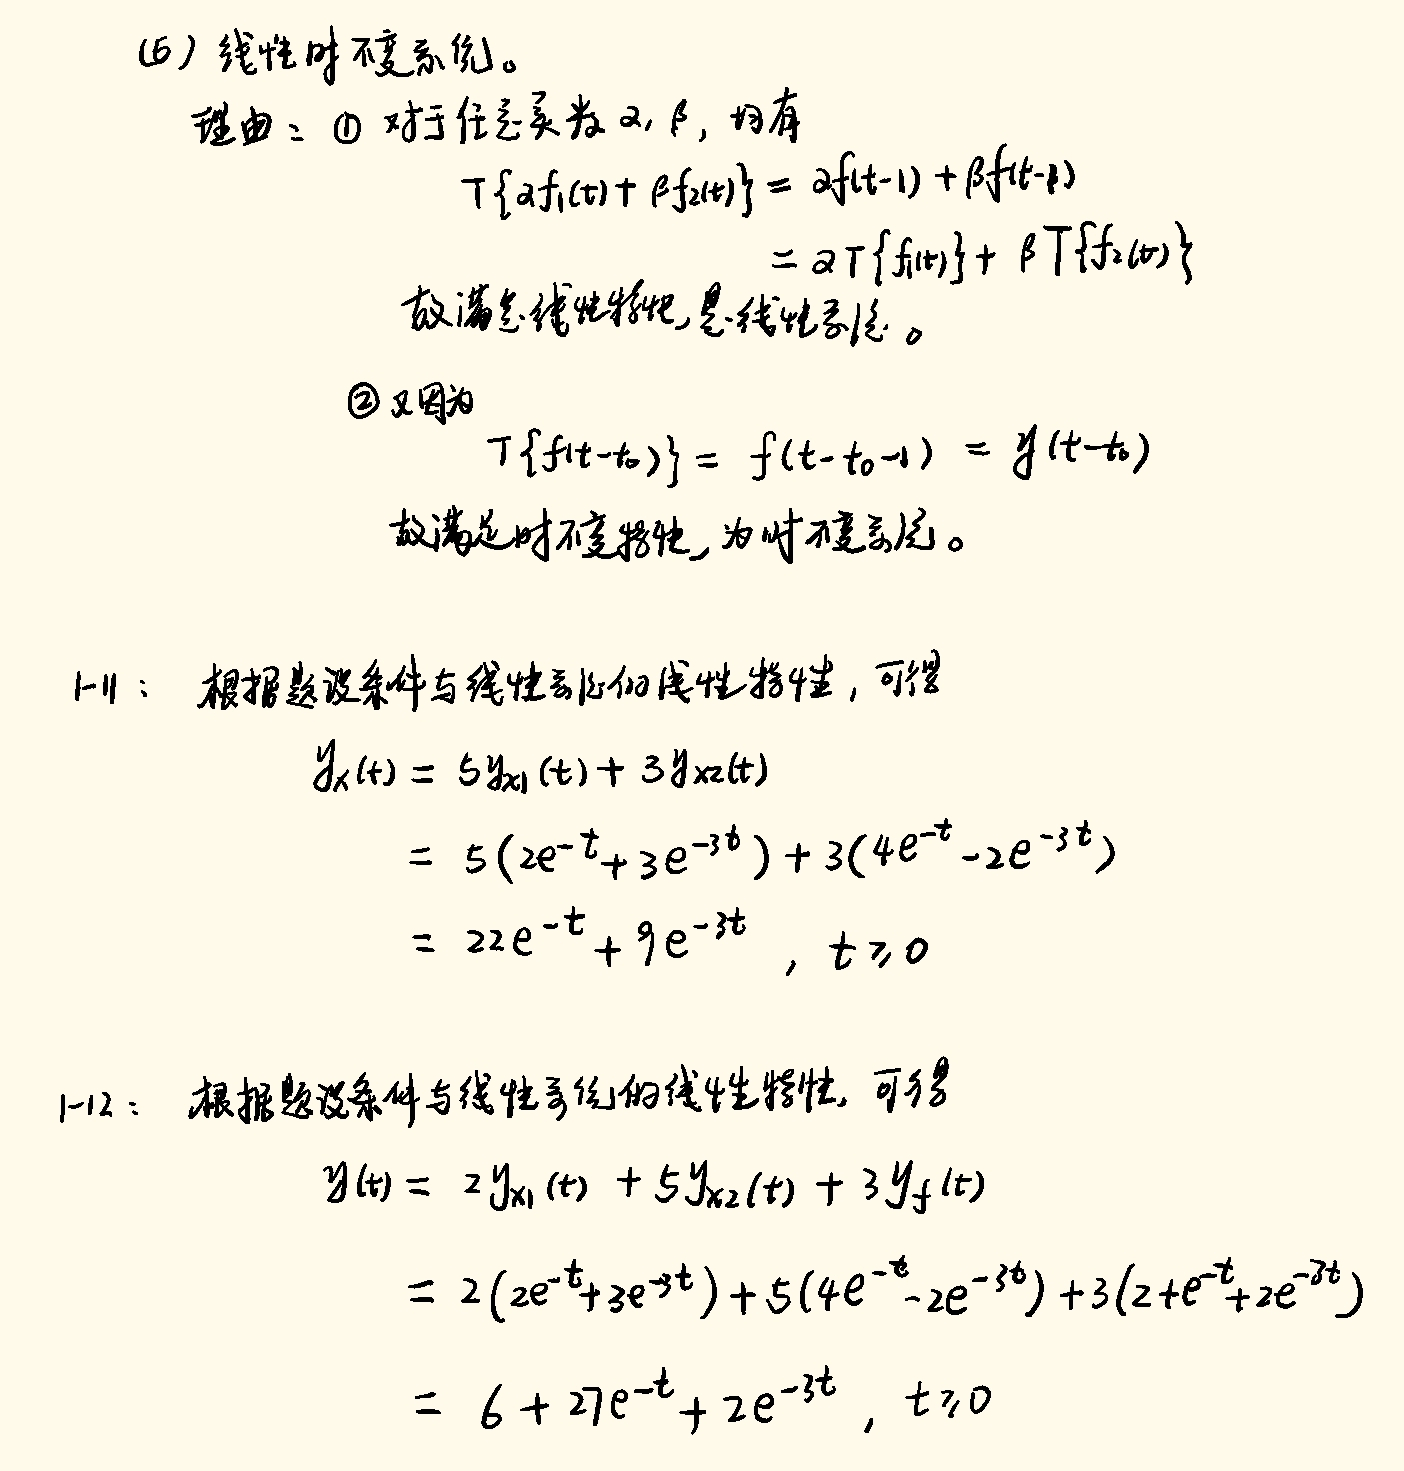 (5) 线性时不变系统。
理由：① 对于任意实数 α, β, 均有
T{αf₁(t) + βf₂(t)} = αf(t-1) + βf(t-1)
= αT{f₁(t)} + βT{f₂(t)}
故满足线性特性, 是线性系统。
② 又因为
T{f(t-t₀)} = f(t-t₀-1) = y(t-t₀)
故满足时不变特性, 为时不变系统。
1-11: 根据题设条件与线性系统的线性特性, 可得
yₓ(t) = 5yₓ₁(t) + 3yₓ₂(t)
= 5(2e^{-t} + 3e^{-3t}) + 3(4e^{-t} - 2e^{-3t})
= 22e^{-t} + 9e^{-3t}, t ≥ 0
1-12: 根据题设条件与线性系统的线性特性, 可得
y(t) = 2yₓ₁(t) + 5yₓ₂(t) + 3y_f(t)
= 2(2e^{-t} + 3e^{-3t}) + 5(4e^{-t} - 2e^{-3t}) + 3(2 + e^{-t} + 2e^{-3t})
= 6 + 27e^{-t} + 2e^{-3t}, t ≥ 0